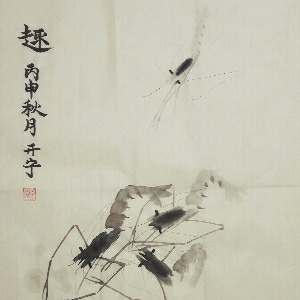 趣
丙申秋月开宇